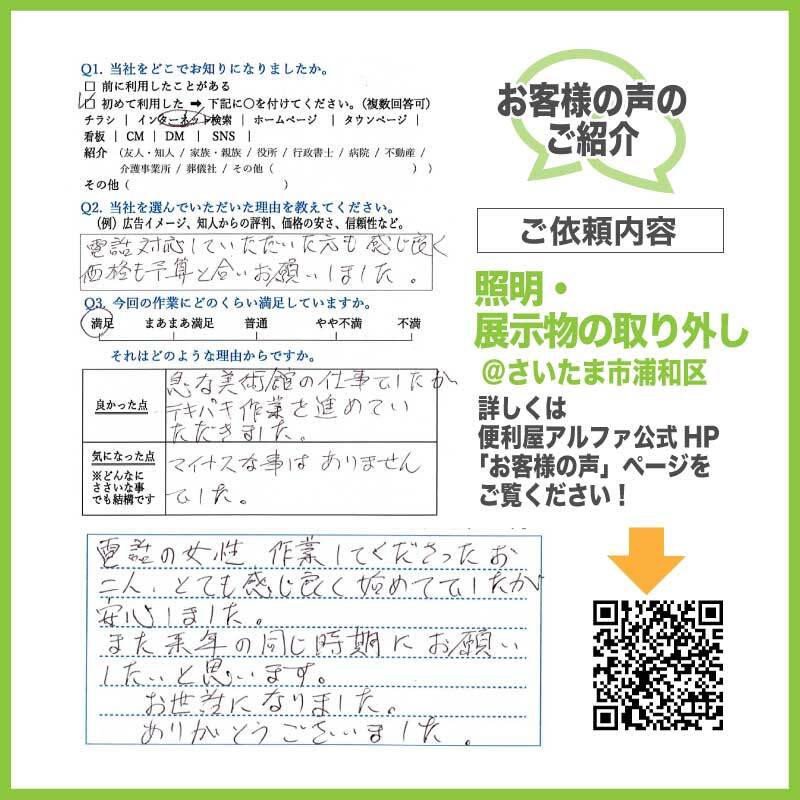 Q1. 当社をどこでお知りになりましたか。
□ 前に利用したことがある
□ 初めて利用した ➡ 下記に○を付けてください。（複数回答可）
チラシ | インターネット検索 | ホームページ | タウンページ |
看板 | CM | DM | SNS |
紹介 （友人・知人 / 家族・親族 / 役所 / 行政書士 / 病院 / 不動産 /
介護事業所 / 葬儀社 / その他（ ））
その他（ ）
Q2. 当社を選んでいただいた理由を教えてください。
（例）広告イメージ、知人からの評判、価格の安さ、信頼性など。
電話対応していただいた方も感じ良く
価格も予算と合いお願いしました。
Q3. 今回の作業にどのくらい満足していますか。
満足 まあまあ満足 普通 やや不満 不満
それはどのような理由からですか。
良かった点
急な美術館の仕事でしたが
テキパキ作業を進めてい
ただきました。
気になった点
※どんなに
ささいな事
でも結構です
マイナスな事はありません
でした。
電話の女性 作業してくださったお
二人、とても感じ良く始めてでしたが
安心しました。
また来年の同じ時期にお願い
したいと思います。
お世話になりました。
ありがとうございました。
お客様の声の
ご紹介
ご依頼内容
照明・
展示物の取り外し
＠さいたま市浦和区
詳しくは
便利屋アルファ公式HP
「お客様の声」ページを
ご覧ください！